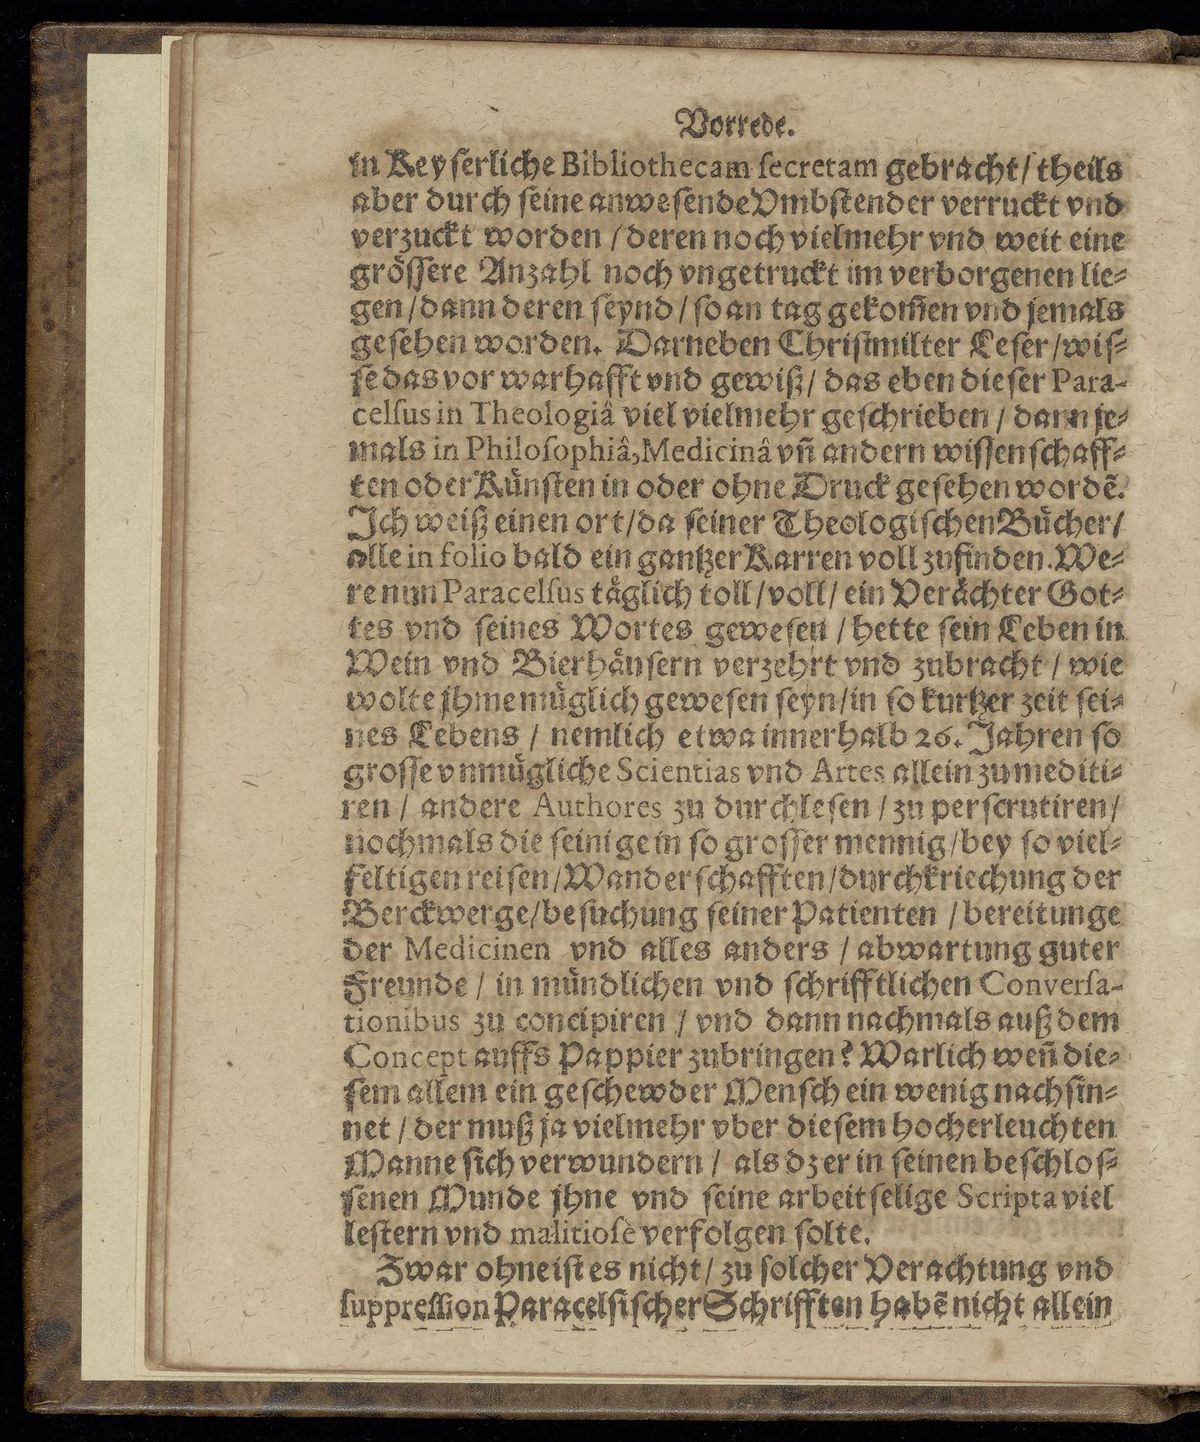 Vorrede.
in Keyserliche Bibliothecam secretam gebracht / theils
aber durch seine anwesende Vmbstender verruckt vnd
verzuckt worden / deren noch vielmehr vnd weit eine
grössere Anzahl noch vngetruckt im verborgenen lie-
gen / dann deren seynd / so an tag gekom̃en vnd jemals
gesehen worden. Darneben Christmilter Leser / wis-
se das vor warhafft vnd gewiß / das eben dieser Para-
celsus in Theologiâ viel vielmehr geschrieben / dann je-
mals in Philosophiâ, Medicinâ vñ andern wissenschaff-
ten oder Künsten in oder ohne Druck gesehen wordẽ.
Ich weiß einen ort / da seiner Theologischen Bücher /
alle in folio bald ein gantzer Karren voll zufinden. We-
re nun Paracelsus täglich toll / voll / ein Verächter Got-
tes vnd seines Wortes gewesen / hette sein Leben in
Wein vnd Bierhäusern verzehrt vnd zubracht / wie
wolte jhme müglich gewesen seyn / in so kurtzer zeit sei-
nes Lebens / nemlich etwa innerhalb 26. Jahren so
grosse vnmügliche Scientias vnd Artes allein zu mediti-
ren / andere Authores zu durchlesen / zu perscrutiren /
nochmals die seinige in so grosser mennig / bey so viel-
feltigen reisen / Wanderschafften / durchkriechung der
Berckwerge / besuchung seiner Patienten / bereitunge
der Medicinen vnd alles anders / abwartung guter
Freunde / in mündlichen vnd schrifftlichen Conversa-
tionibus zu concipiren / vnd dann nachmals auß dem
Concept auffs Pappier zubringen? Warlich weñ die-
sem allem ein geschewder Mensch ein wenig nachsin-
net / der muß ja vielmehr vber diesem hocherleuchten
Manne sich verwundern / als dz er in seinen beschlos-
senen Munde jhne vnd seine arbeitselige Scripta viel
lestern vnd malitiosè verfolgen solte.
Zwar ohne ist es nicht / zu solcher Verachtung vnd
suppression Paracelsischer Schrifften habẽ nicht allein